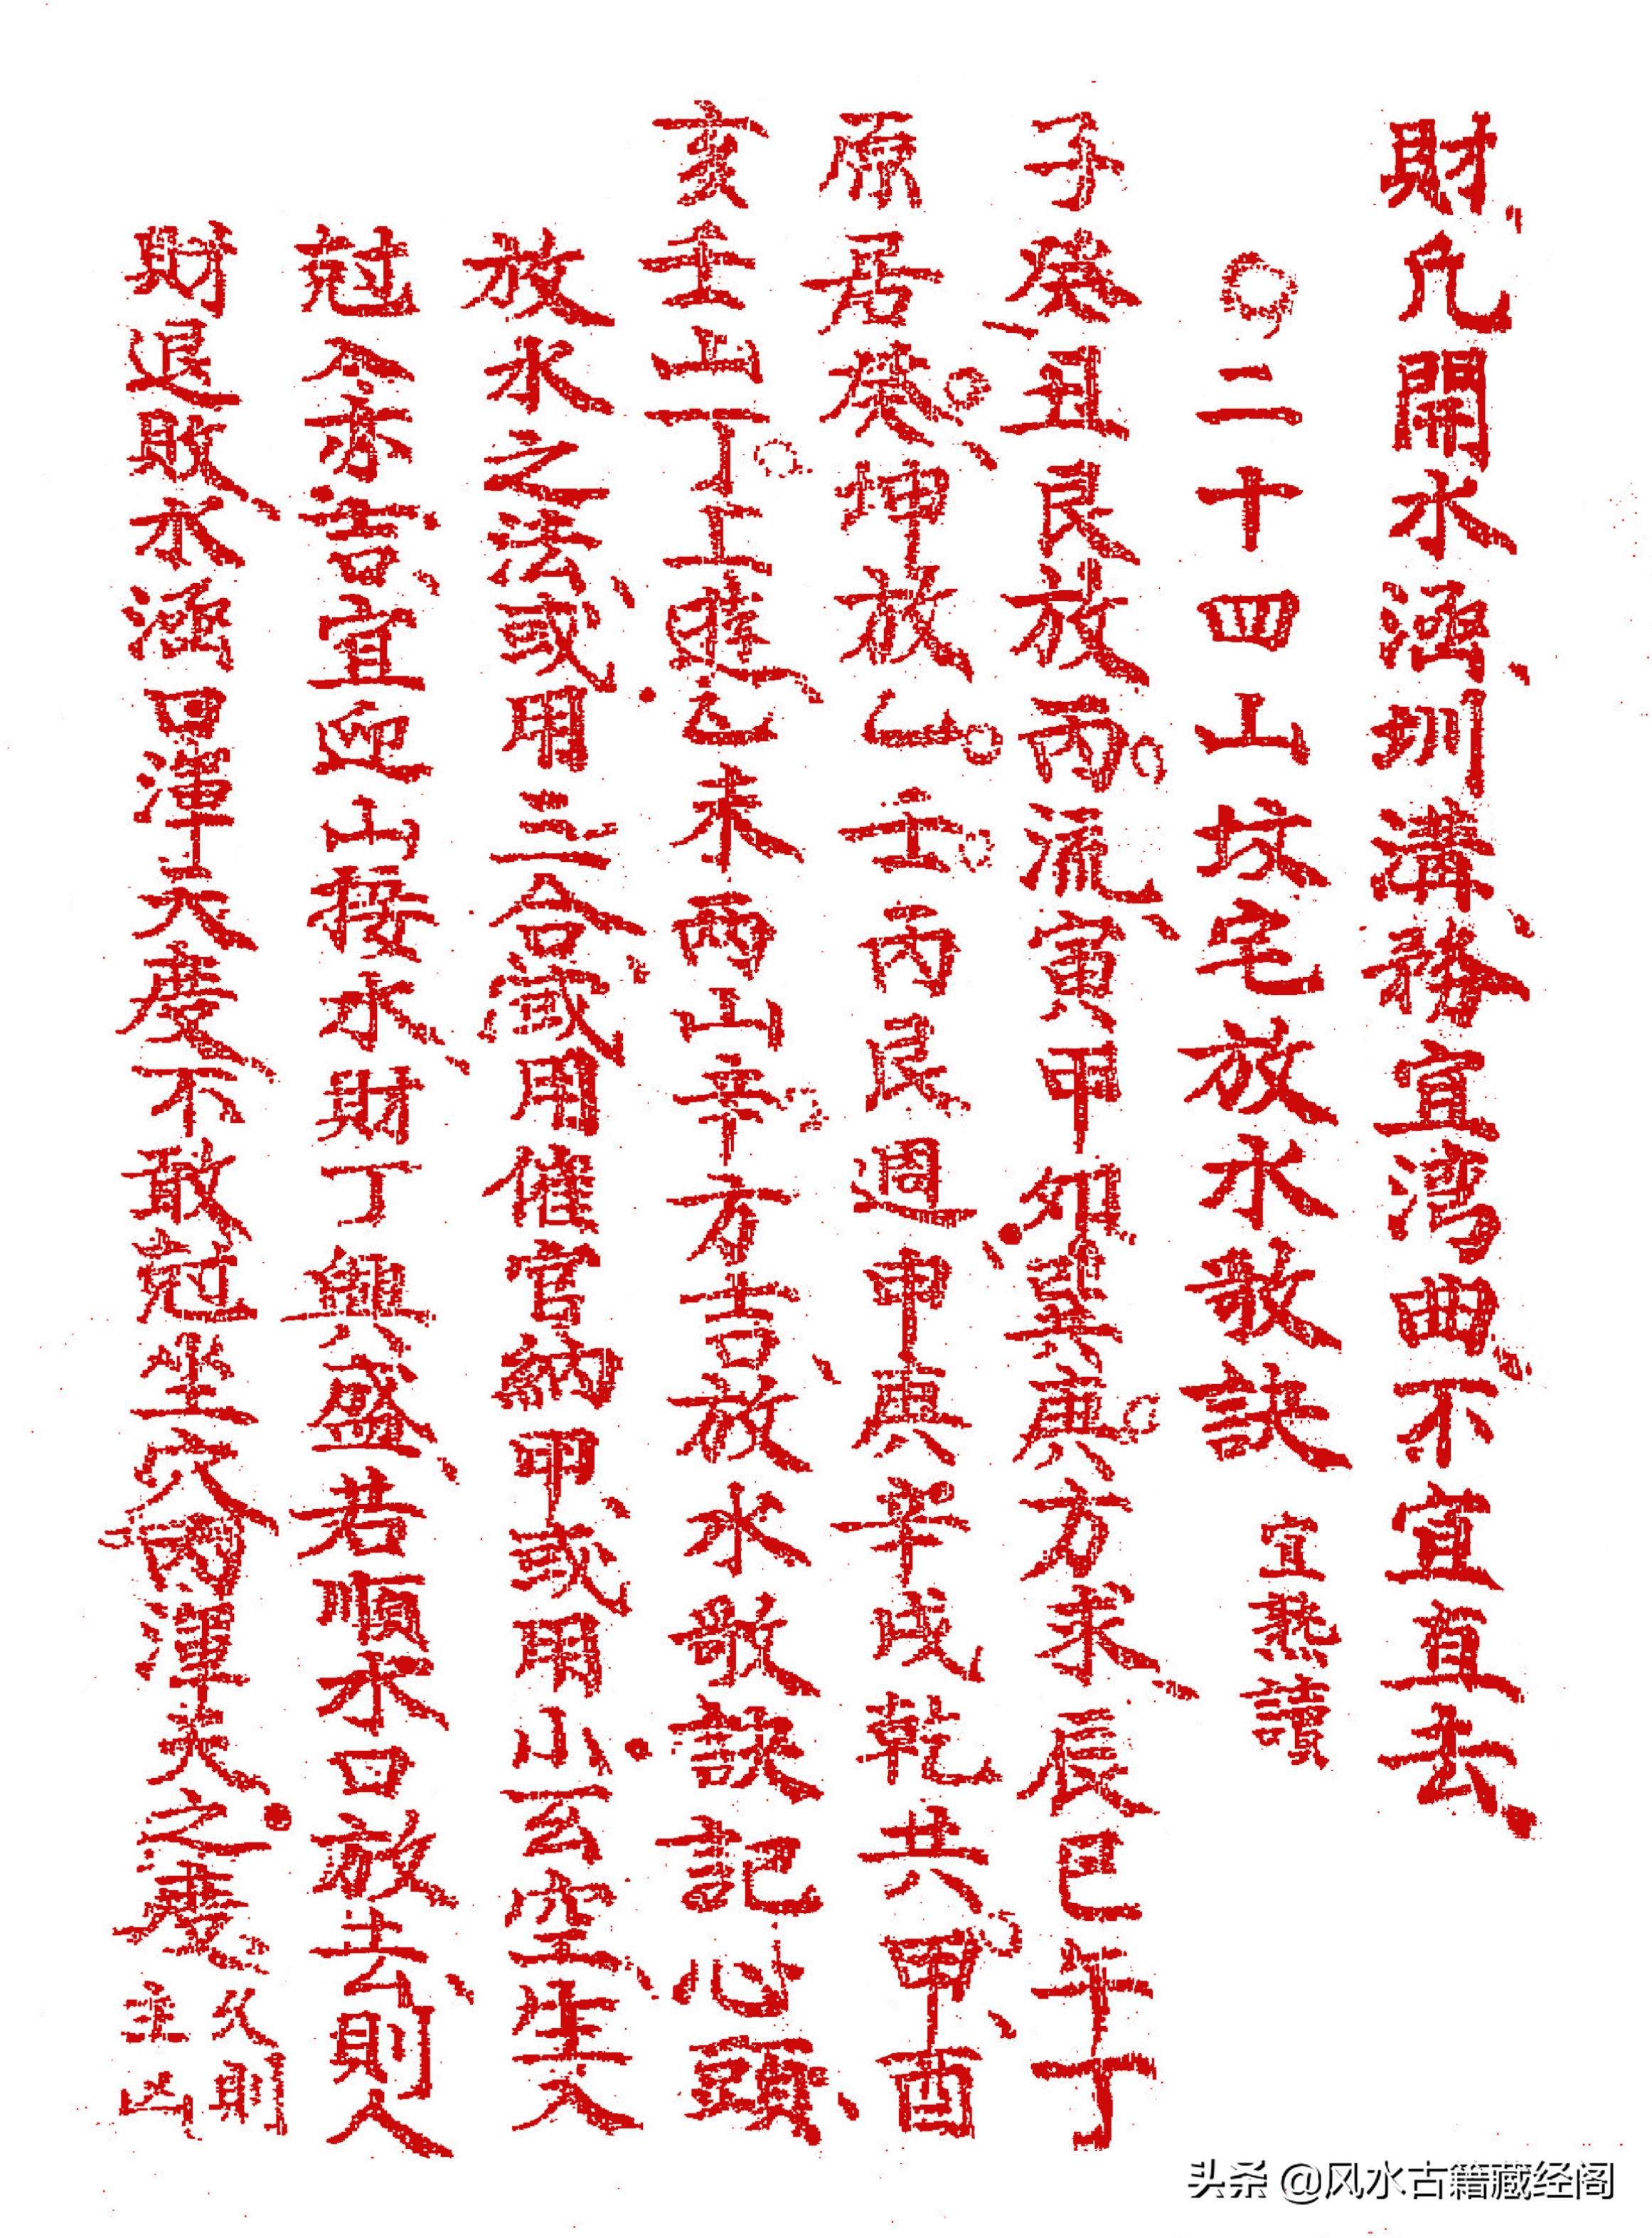 財凢開水涵圳溝務宜湾曲不宜直去
○二十四山坟宅放水歌訣 宜熟讀
子癸丑艮放丙流寅甲卯巽庚方求辰巳午丁
原居癸坤放乙壬丙艮週申庚辛戌乾共甲酉
亥壬山丁上遊乙未两山辛方吉放水歌訣記心頭
放水之法或用三合或用催官納甲或用小玄空生入
尅入亦吉宜迎山接水財丁興盛若順水口放去則人
財退敗水涵口渾天度不敢尅坐穴内渾天之度
久則
主凶
头条 @风水古籍藏经阁